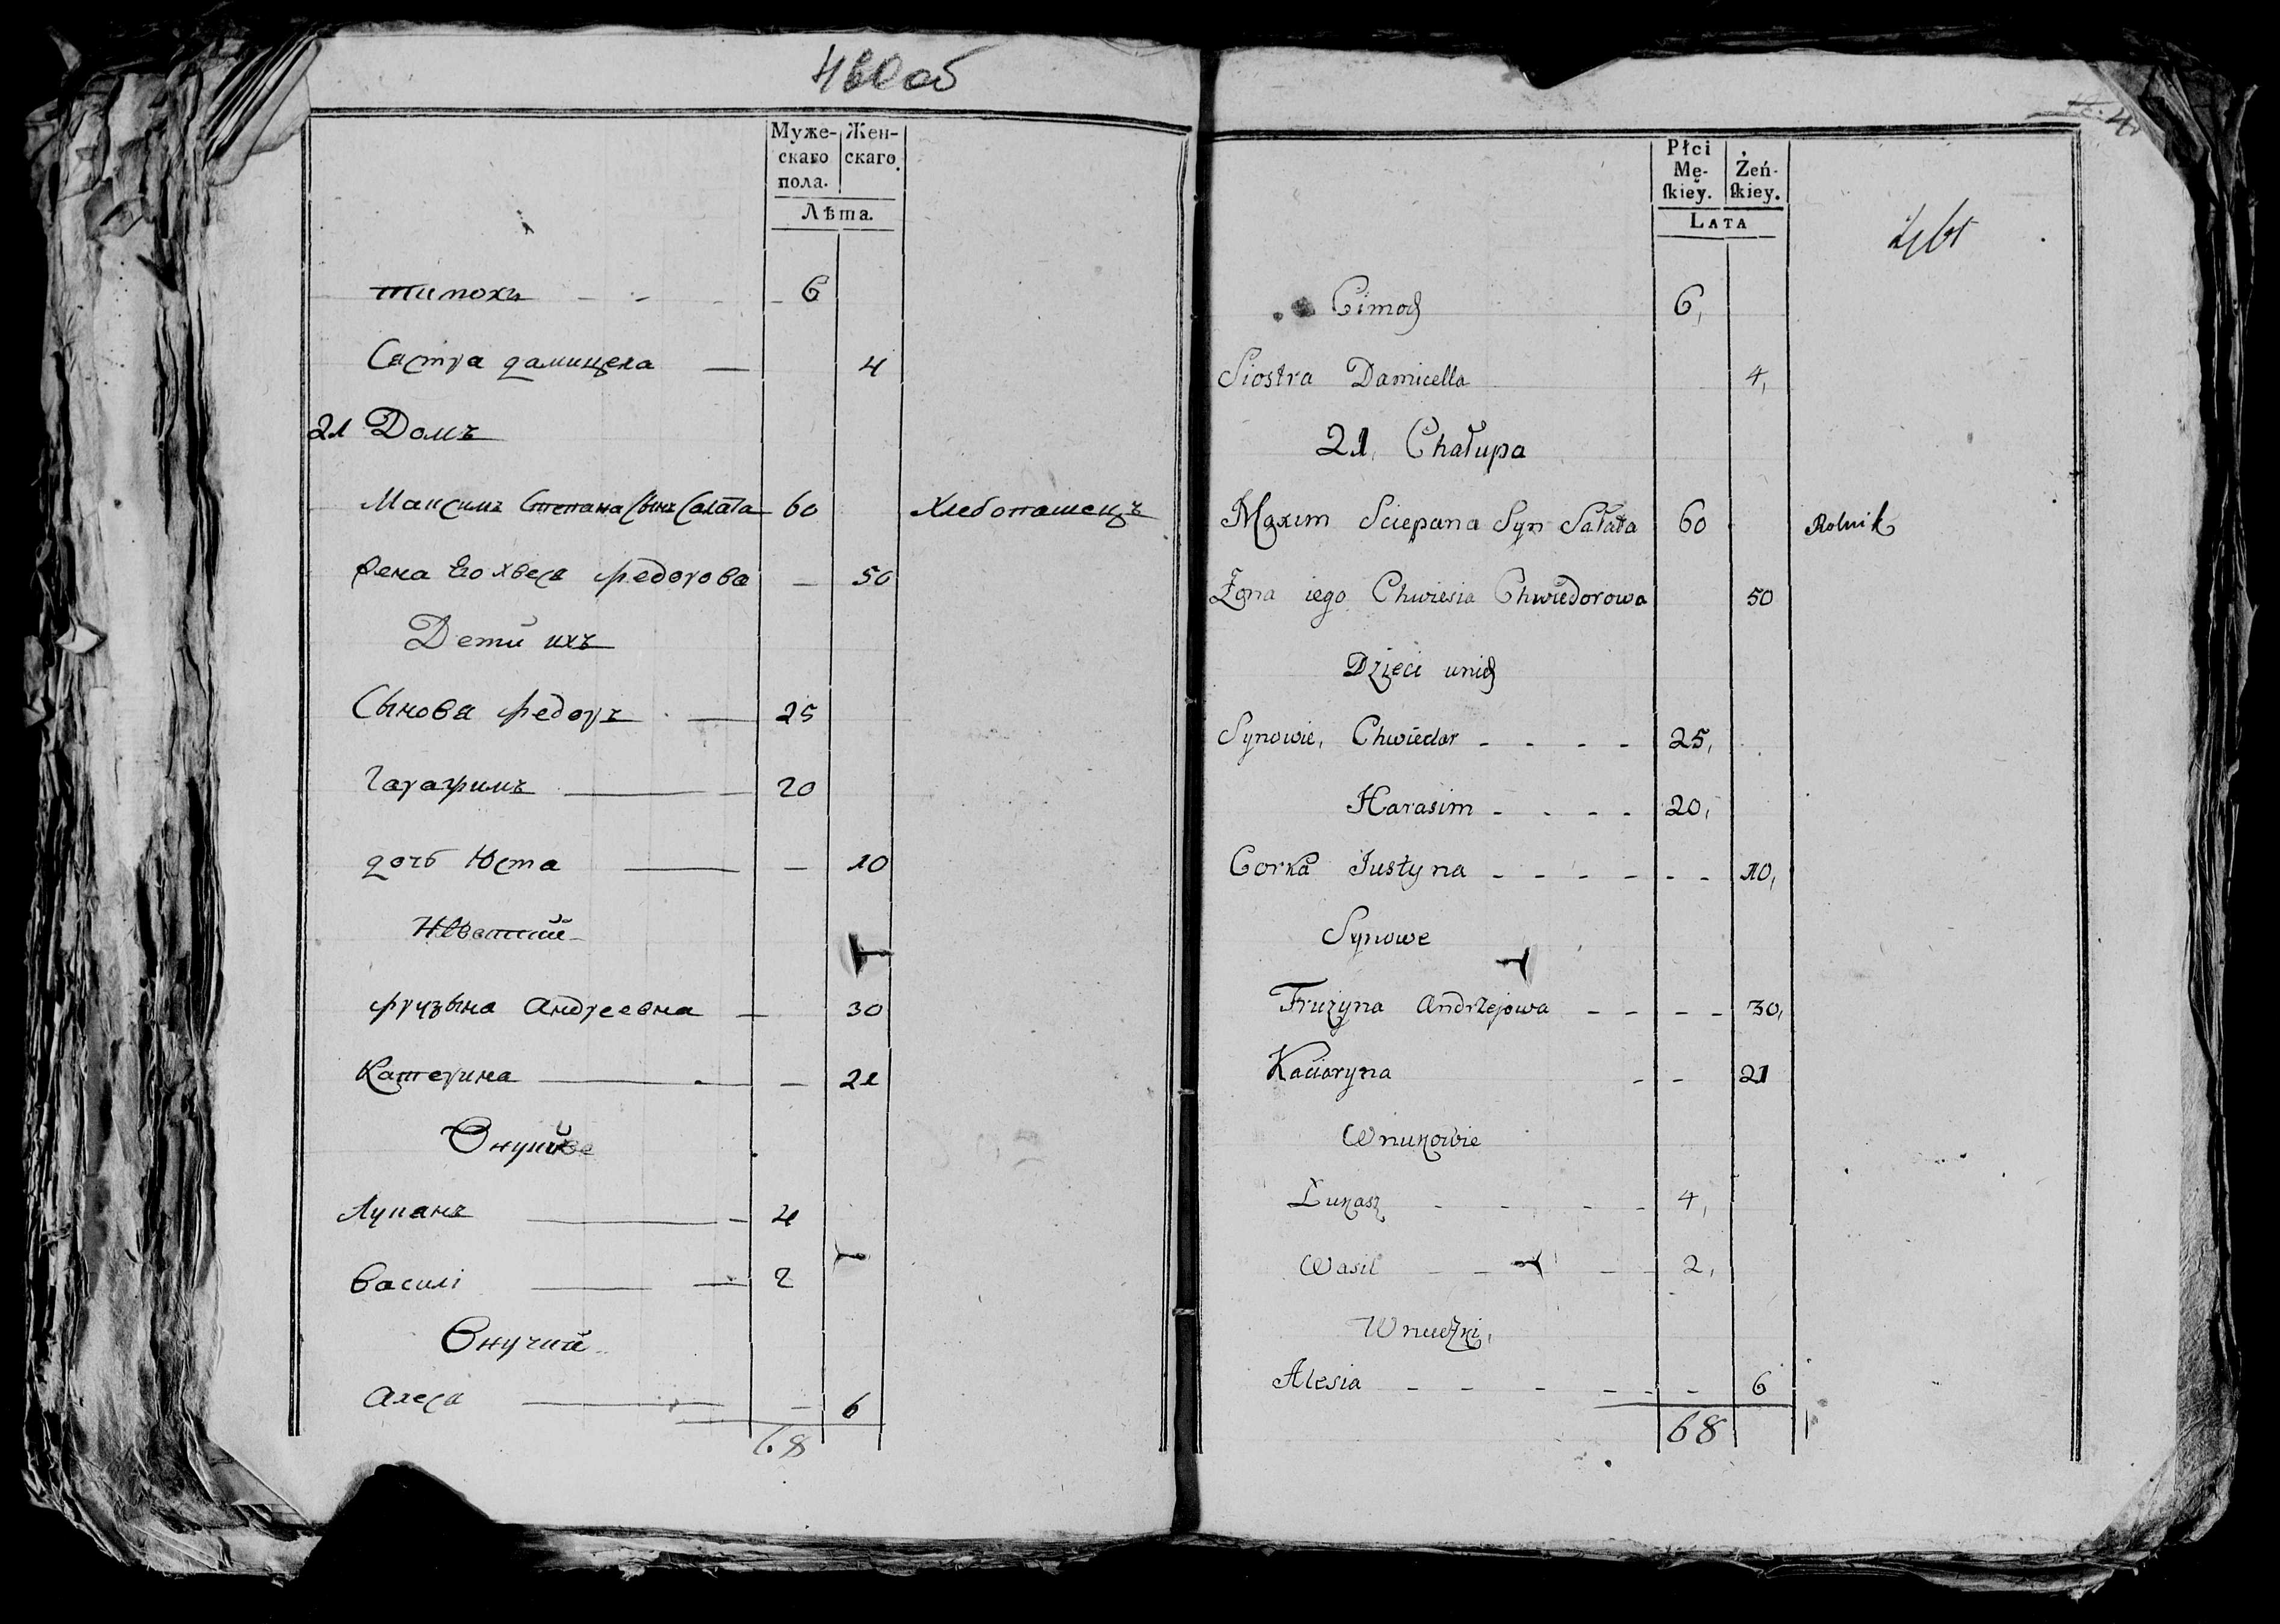 460 об
Муже-
скаго
пола.
Жен-
скаго.
Лѣта.
тимохъ - - - - 6
Састра дамицела — 4
21 Домъ
Максимъ Степана Сынъ Салата 60 Хлебопашецъ
Жена Его хвеся федорова — 50
Дети ихъ
Сынова федоръ — 25
Гарасимъ — 20
дочь Юста — — 10
Невестки
фрузына андреевна — 30
Катерина — — 21
Внуки
Лукашъ — 4
Василі — — 2
Внучки
алеся — — 6
68
461
Płci
Mę-
ſkiey.
Żeń-
ſkiey.
LATA
Cimoch 6,
Siostra Damicella 4,
21, Chałupa
Maxim Sciepana Syn Sałata 60 Rolnik
Żona iego Chwiesia Chwiedorowa 50
Dzieci unich
Synowie, Chwiedor - - - - 25,
Harasim - - - - 20,
Corka Justyna - - - - - - - 10,
Synowe
Fruzyna Andrzejowa - - - - 30,
Kaciaryna - - 21
Wnukowie
Łukasz - - - - 4,
Wasil - - - - 2,
Wnuczki,
Alesia - - - - - - 6
68